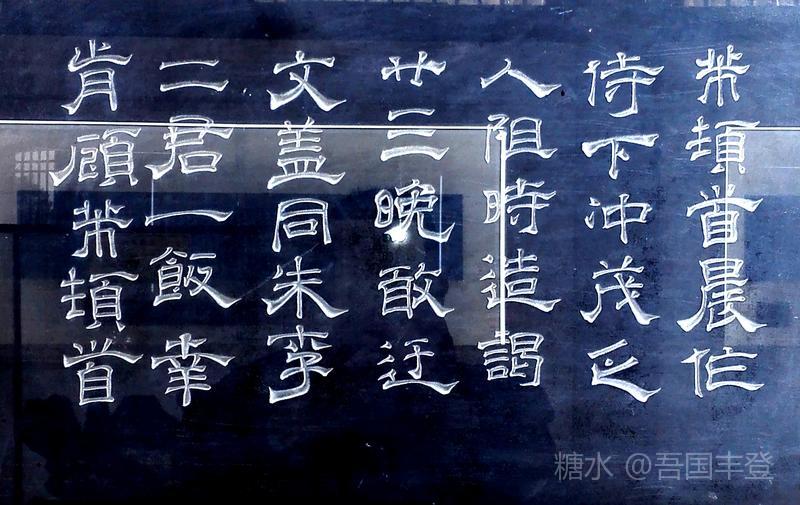 芾頓首晨忙
侍下冲茂乏
人阻時造謁
廿三晚敢迂
文盖同朱李
二君一飯幸
肯顧芾頓首
糖水 @吾国丰登